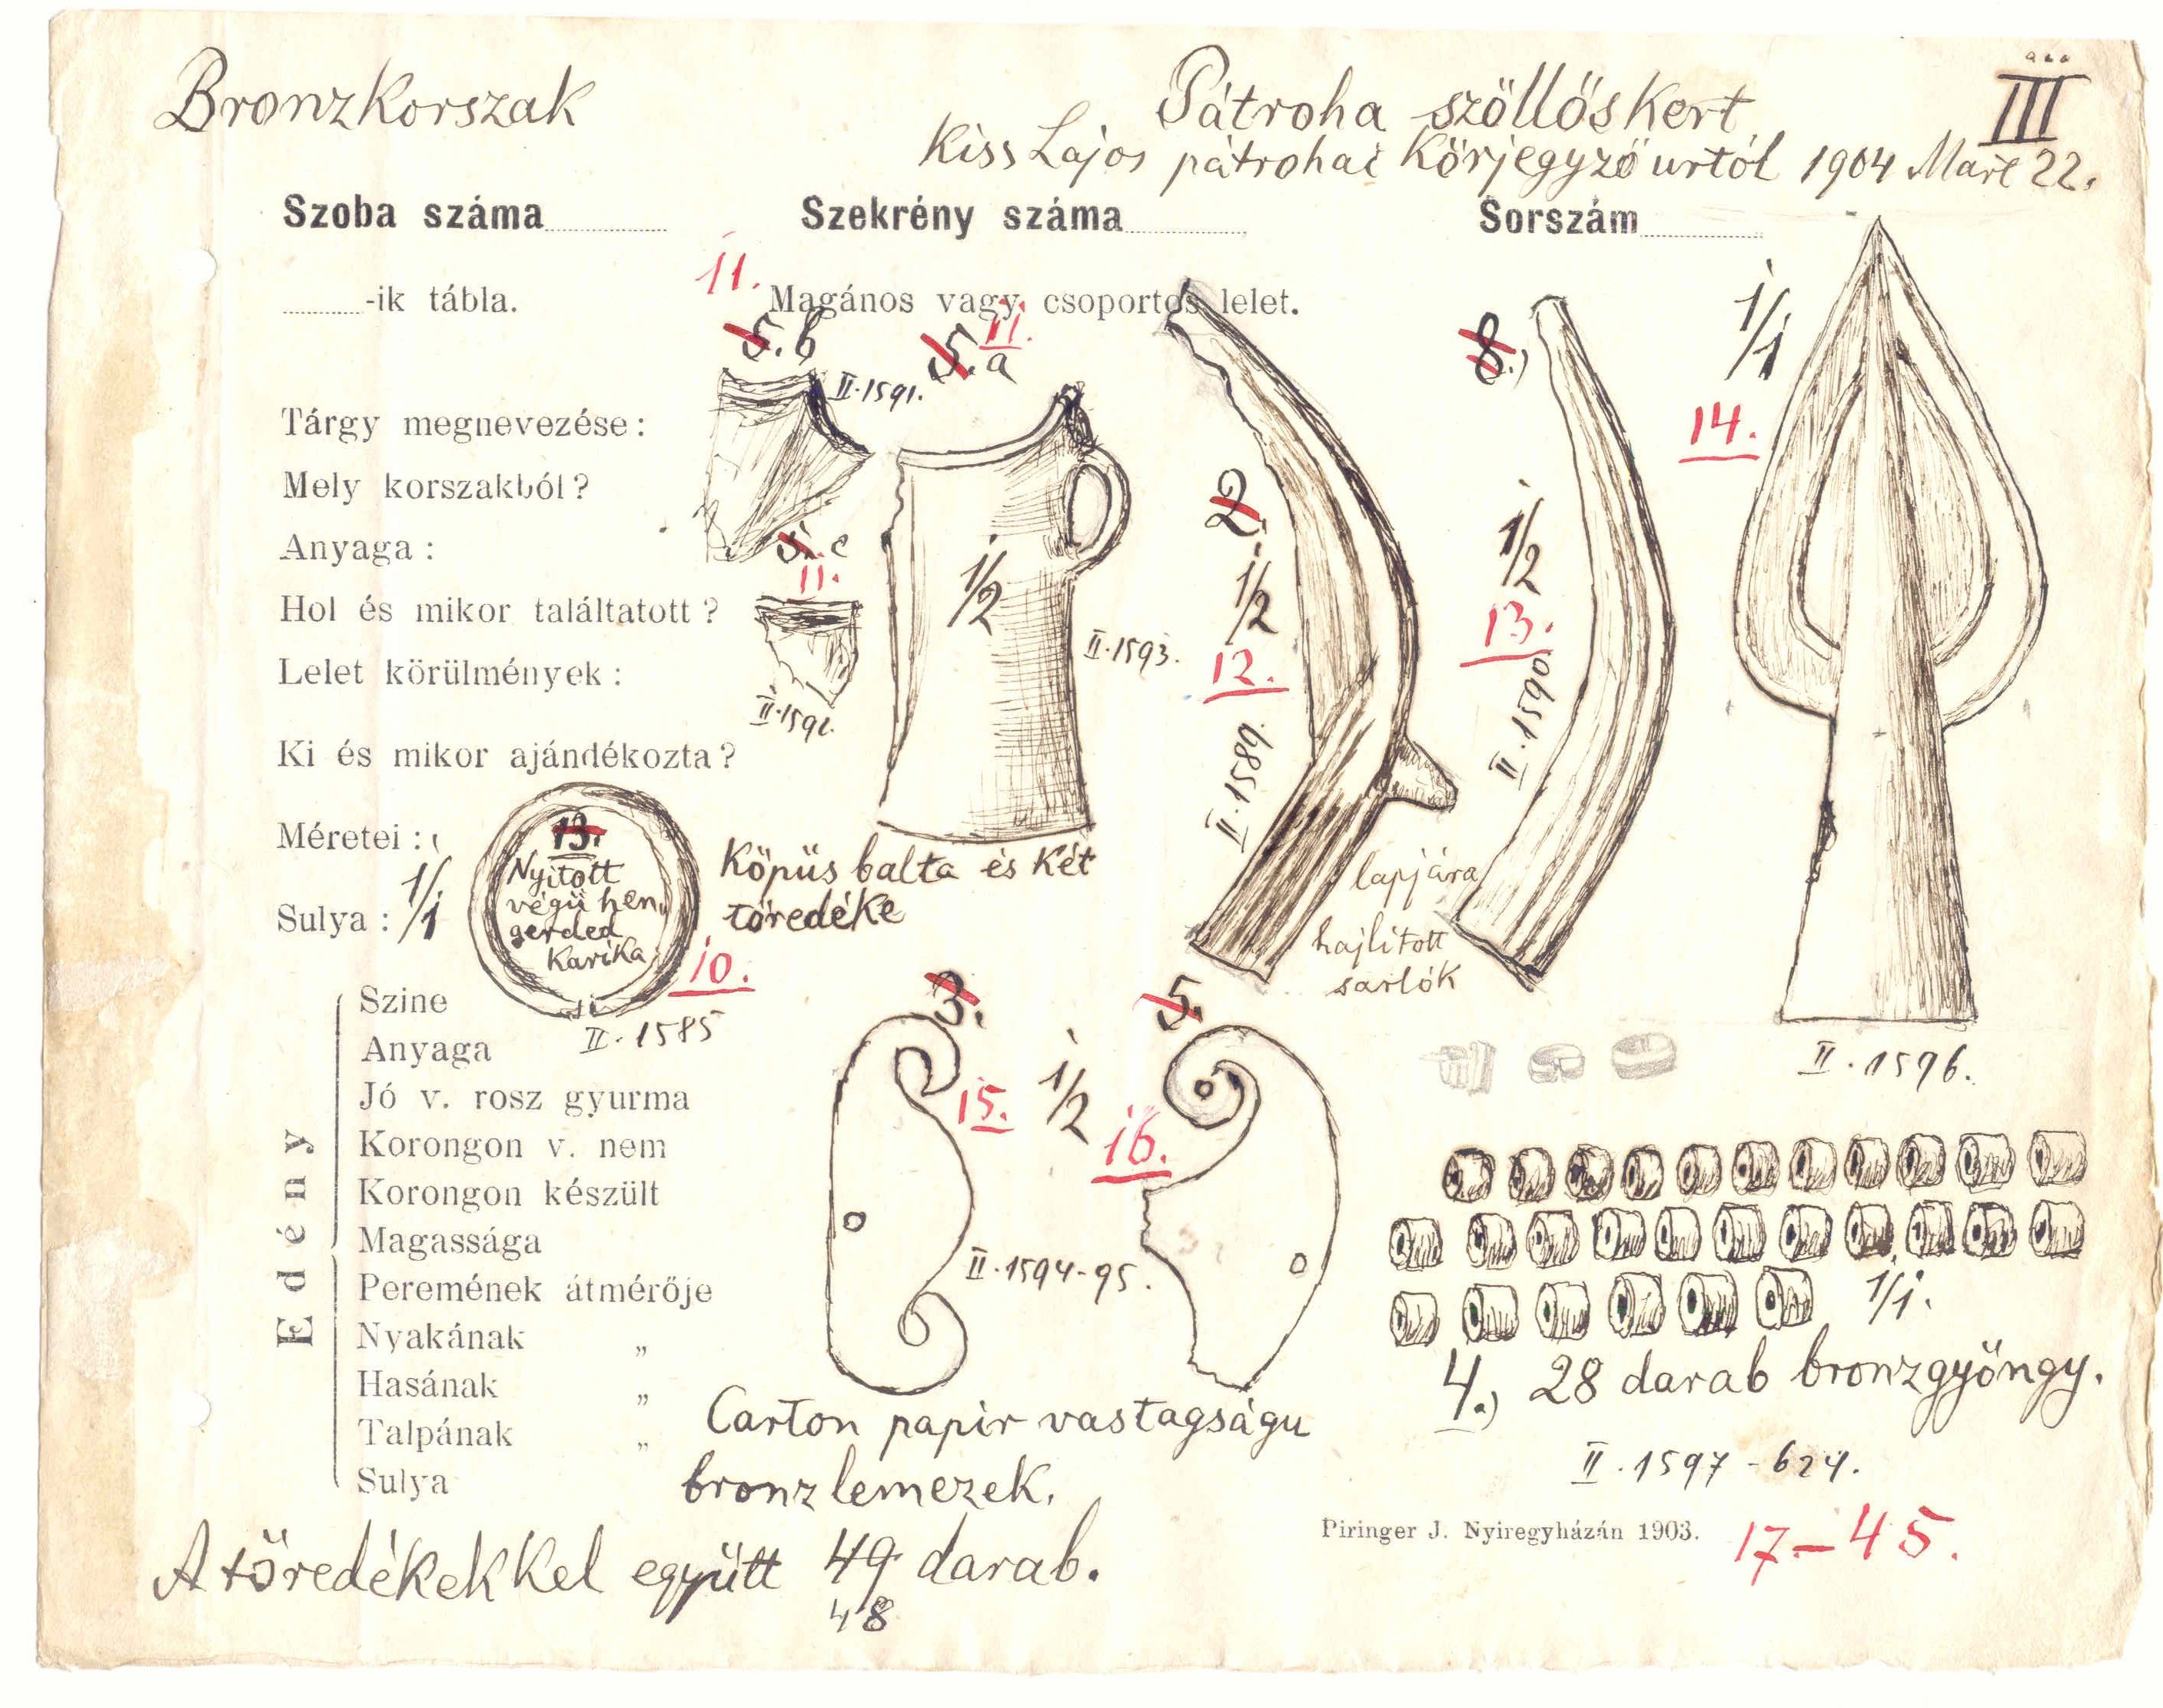 Bronzkorszak
Pátroha szöllőskert
III
Kiss Lajos pátrohai körjegyző urtól 1904 Mart 22.
Szoba száma
Szekrény száma
Sorszám
-ik tábla.
11.
Magános vagy csoportos lelet.
5. b
11.
5. a
II.1591.
8.)
1/1
14.
Tárgy megnevezése:
Mely korszakból?
Anyaga:
Hol és mikor találtatott?
Lelet körülmények:
Ki és mikor ajándékozta?
Méretei:
Sulya:
5. c
11.
1/2
II.1593.
2.
1/2
12.
II.1589.
1/2
13.
II.1590.
1/1
13.
Nyitott
végű hen
gerded
karika
10.
II.1585
Köpüs balta és két
töredéke
lapjára
hajlitott
sarlók
II.1596.
Edény
Szine
Anyaga
Jó v. rosz gyurma
Korongon v. nem
Korongon készült
Magassága
Peremének átmérője
Nyakának „
Hasának „
Talpának „
Sulya
3.
15.
1/2
5.
16.
II.1594-95.
Carton papir vastagságu
bronzlemezek.
1/1.
4.) 28 darab bronzgyöngy.
II.1597-624.
Piringer J. Nyiregyházán 1903.
17-45.
A töredékekkel együtt 49 darab.
48